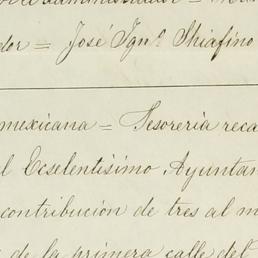 dor = José Ygnº Shiafino
mexicana = Tesorería reca
l Ecselentísimo Ayuntam
contribución de tres al m
de la primera calle del